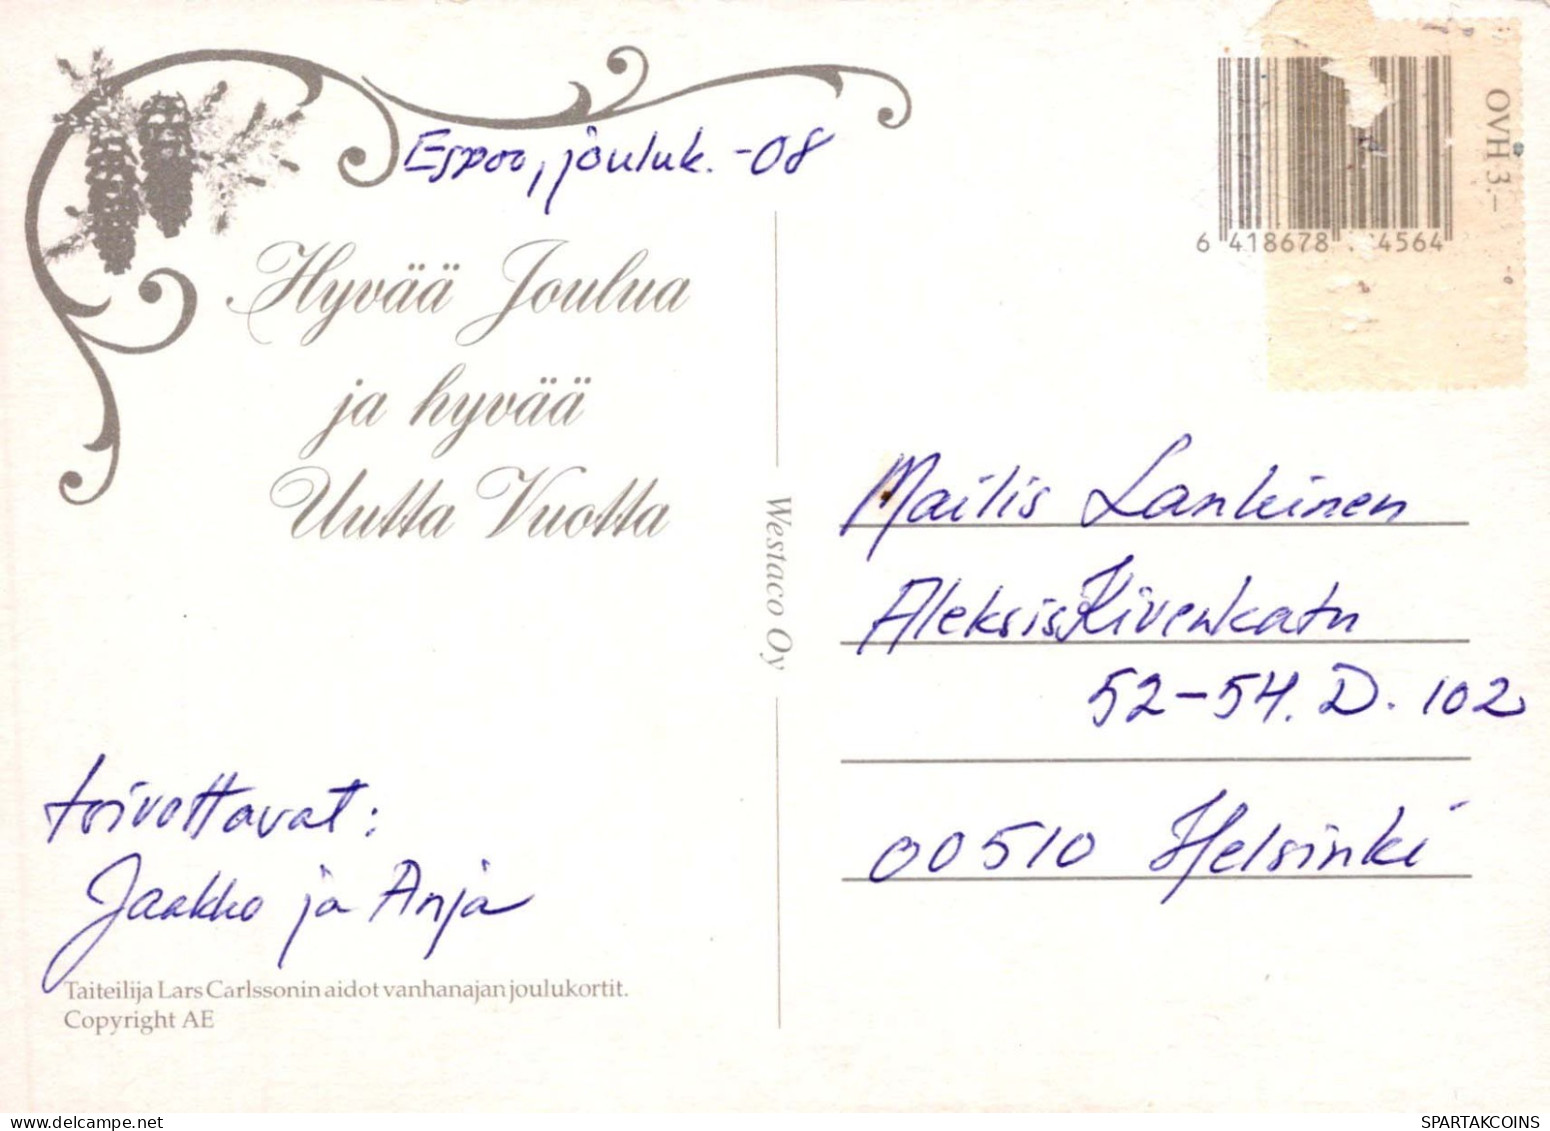 Espoo, jouluk. -08
Hyvää Joulua
ja hyvää
Uutta Vuotta
toivottavat:
Jaakko ja Anja
Taiteilija Lars Carlssonin aidot vanhanajan joulukortit.
Copyright AE
Westaco Oy
OVH 3.-
6 418678 4564
Mailis Lankinen
Aleksis Kivenkatu
52-54. D. 102
00510 Helsinki
SPARTAKCOINS